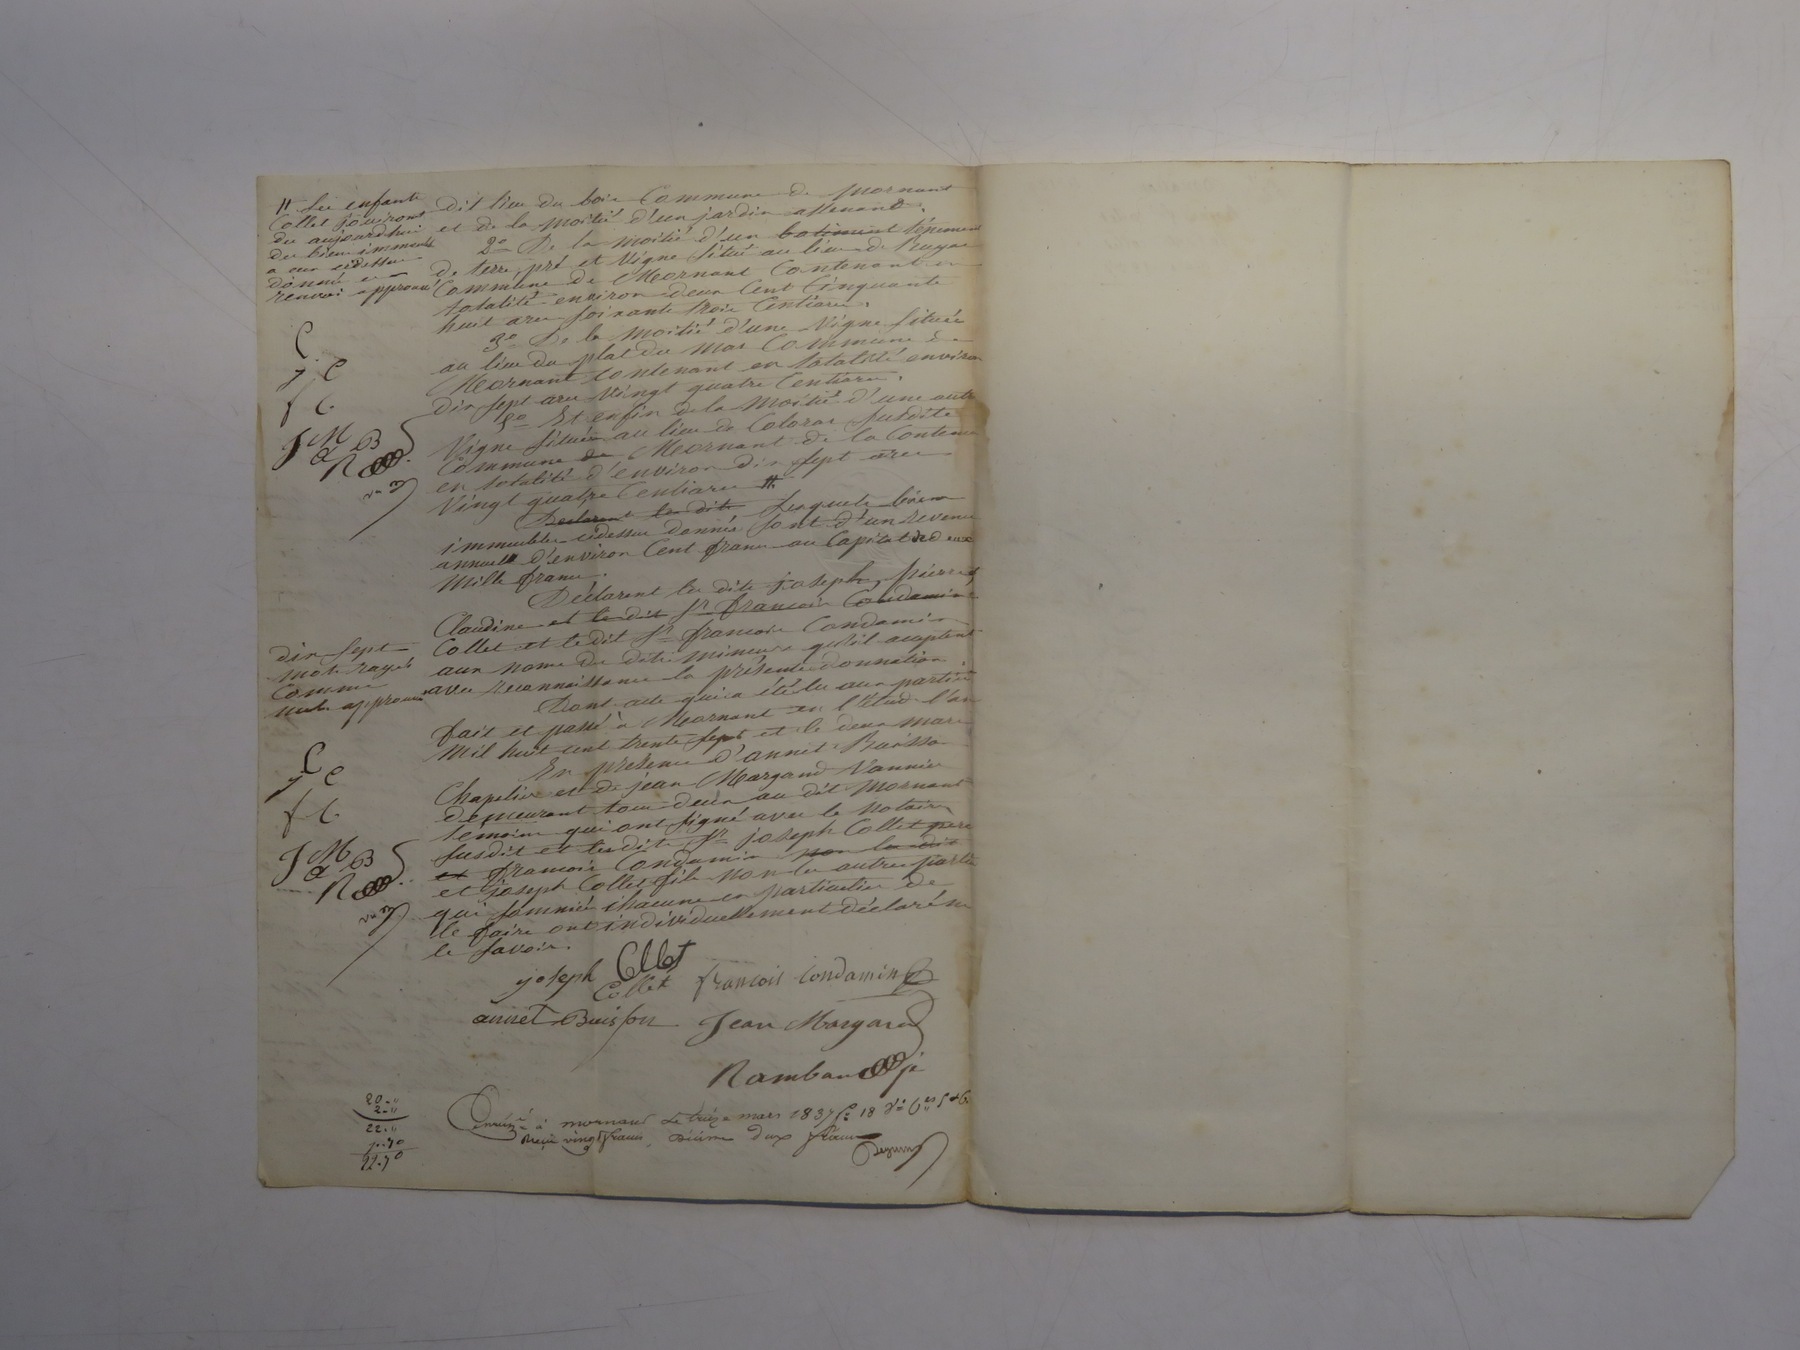 # Les enfants
Collet jouiront
du aujourdhui
des biens immeubles
a eux cidessus
donnés
renvoi approuvé
C.
J C
f C
J M
a B
R
dit lieu du bois Commune de Mornant
et de la moitié d'un jardin attenant.
2º De la moitié d'un batiment tènement
de terre, pré et vigne situé au lieu de
Commune de Mornant Contenant en
totalité environ deux Cent Cinquante
huit ares soixante trois Centiares.
3º De la moitié d'une Vigne située
au lieu du plat du Mas Commune de
Mornant Contenant en totalité environ
dix sept ares vingt quatre Centiares.
Et enfin de la moitié d'une autre
Vigne située au lieu de Coloras susdite
Commune de Mornant de la Contenue
en totalité d'environ dix sept ares
Vingt quatre Centiares #.
Declarent les dits lesquels biens
immeubles cidessus donnés sont d'un revenu
annuel d'environ Cent francs au Capital de deux
Mille francs.
Déclarent les dits joseph, pierre,
Claudine et le dit Sr françois Condamin
Collet et le dit Sr françois Condamin
aux noms des dits mineurs qu'il acceptent
avec reconnaissance la présente donnation.
dix sept
mots rayés
Comme
nuls approuvé
Dont acte qui a été lu aux parties
fait et passé à Mornant en l'Etude l'an
Mil huit cent trente sept et le deux mars
En présence d'annet Buisson
Chapelier et de jean Margand Vannier
demeurant tous deux au dit Mornant
témoins qui ont signé avec le Notaire
susdit et les dits Sr joseph Collet pere
et françois Condamin non les dits
et joseph Collet fils non les autres parties
qui sommées chacune en particulier de
le faire ont individuellement déclaré ne
le savoir.
C
J C
f C
J M
a B
R
joseph Collet
Collet françois Condamin
annet Buisson Jean Margand
Rambaud
20 - "
2 - "
22 - "
22.70
Enrégré à mornant le treize mars 1837 fº 18
Reçu vingt francs, décime deux francs